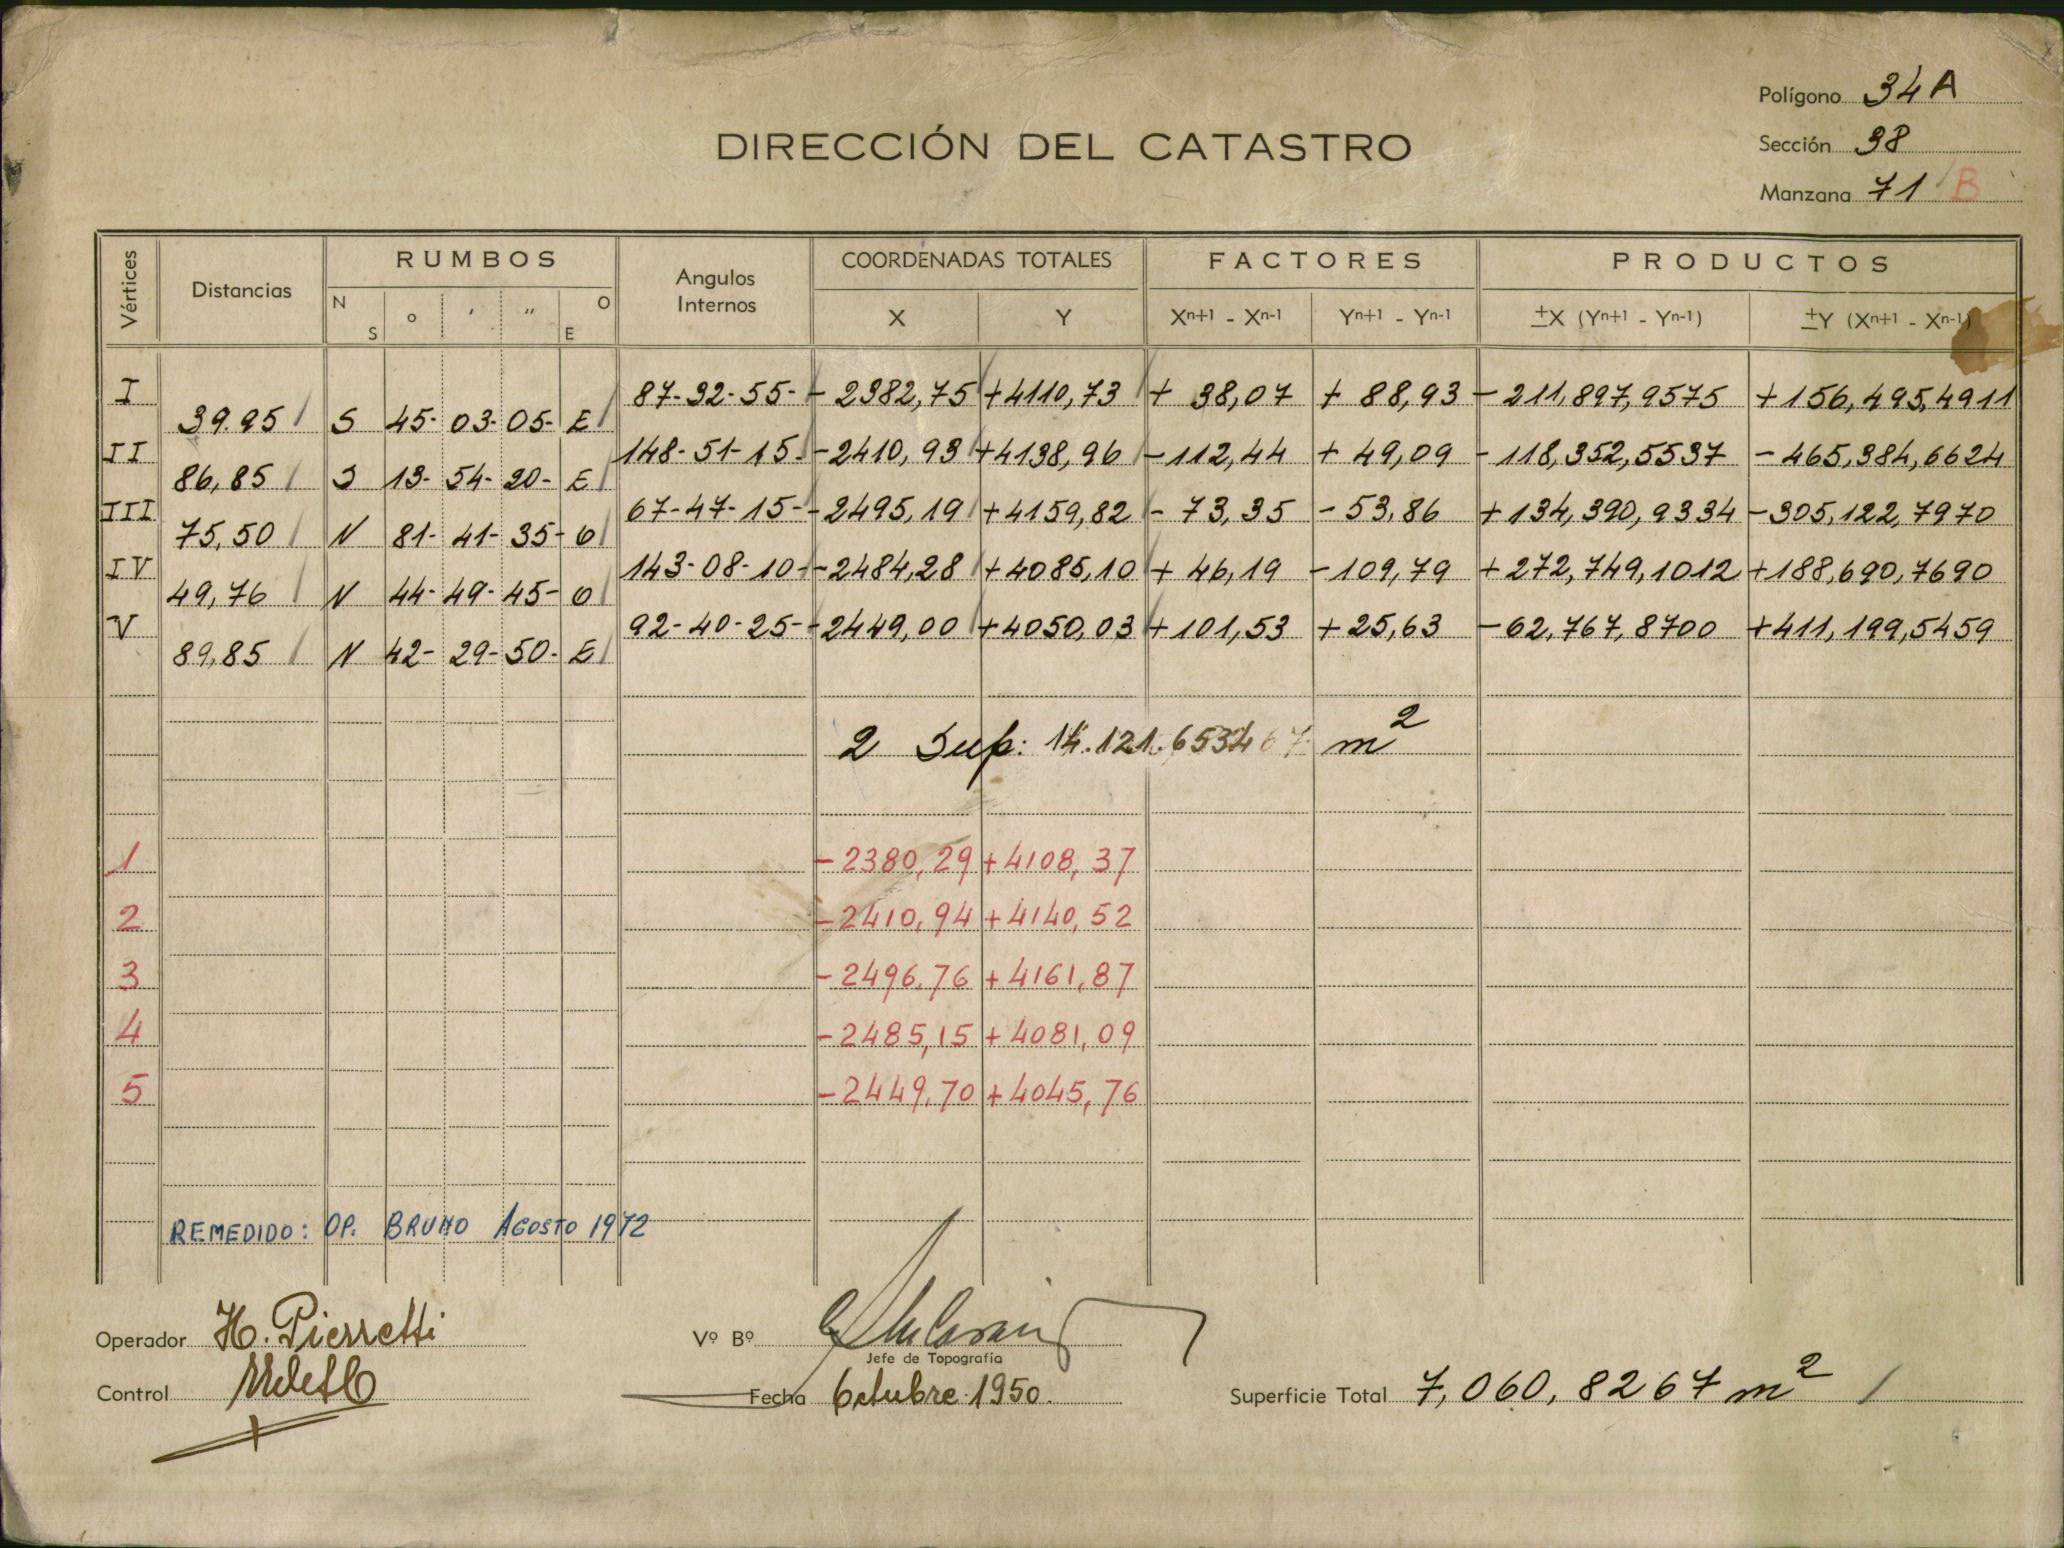 Polígono 34 A
DIRECCIÓN DEL CATASTRO
Sección 38
Manzana 71 B
Vértices Distancias RUMBOS Angulos Internos COORDENADAS TOTALES FACTORES PRODUCTOS
N S o ' " O E X Y Xn+1 - Xn-1 Yn+1 - Yn-1 ±X (Yn+1 - Yn-1) ±Y (Xn+1 - Xn-1)
I 87-32-55- - 2382,75 +4110,73 + 38,07 + 88,93 - 211,897,9575 +156,495,4911
39.95 S 45- 03- 05- E
II 148-51-15- -2410,93 +4138,96 -112,44 + 49,09 - 118,352,5537 - 465,384,6624
86,85 S 13- 54- 20- E
III 67-47-15- -2495,19 +4159,82 - 73,35 - 53,86 +134,390,9334 -305,122,7970
75,50 N 81- 41- 35- O
IV 143-08-10- -2484,28 +4085,10 + 46,19 -109,79 +272,749,1012 +188,690,7690
49,76 N 44- 49- 45- O
V 92-40-25- -2449,00 +4050,03 +101,53 + 25,63 -62,767,8700 +411,199,5459
89,85 N 42- 29- 50- E
2 Sup: 14.121.6534 m2
1 -2380,29 +4108,37
2 -2410,94 +4140,52
3 -2496,76 +4161,87
4 -2485,15 +4081,09
5 -2449,70 +4045,76
REMEDIDO: OP. BRUNO AGOSTO 1972
Operador H. Pierretti Vº Bº
Jefe de Topografía
Control Fecha Octubre 1950. Superficie Total 7,060,8267 m2